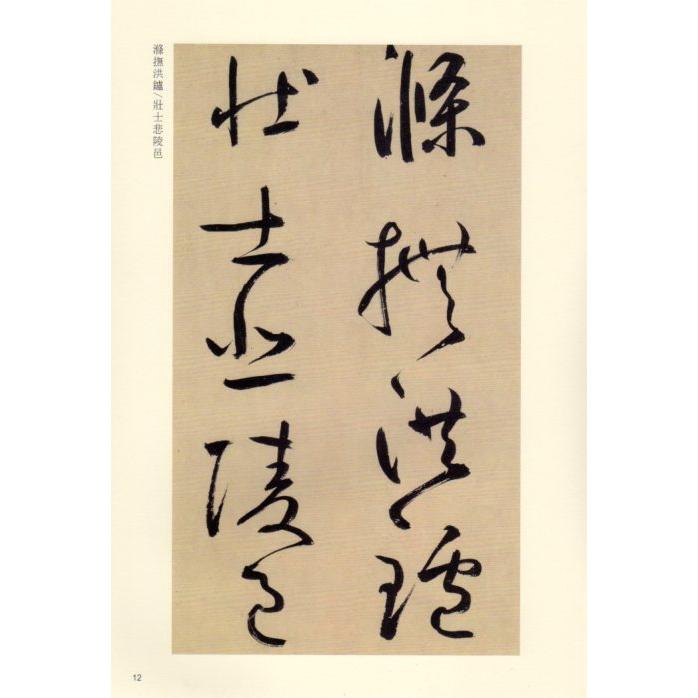 滌撫洪鑪
壯士悲陵邑
滌撫洪鑪/壯士悲陵邑
12